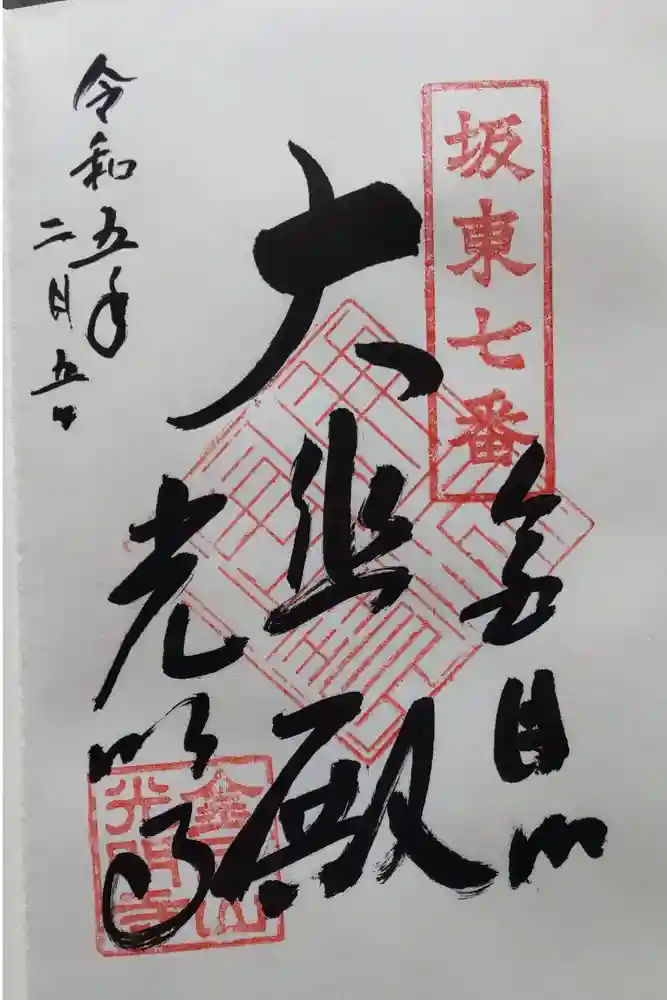 坂東七番
金目山
大悲殿
光明寺
令和五年
二月五日
金目山
光明寺